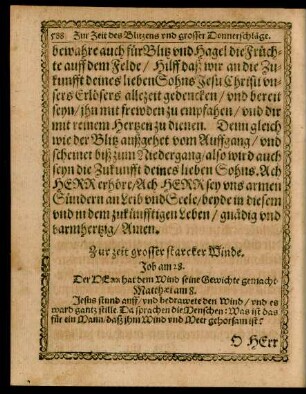 588 Zur Zeit des Blitzens vnd grosser Donnerschläge.
bewahre auch für Blitz vnd Hagel die Früch-
te auff dem Felde / Hilff daß wir an die Zu-
kunfft deines lieben Sohns Jesu Christi vn-
sers Erlösers allezeit gedencken / vnd bereit
seyn / jhn mit frewden zu empfahen / vnd dir
mit reinem Hertzen zu dienen. Denn gleich
wie der Blitz außgehet vom Auffgang / vnd
scheinet biß zum Niedergang / also wird auch
seyn die Zukunfft deines lieben Sohns. Ach
HERR erhöre / Ach HERR sey vns armen
Sündern an Leib vnd Seele / beyde in diesem
vnd in dem zukünfftigen Leben / gnädig vnd
barmhertzig / Amen.
Zur zeit grosser starcker Winde.
Job am 28.
Der HErr hat dem Wind seine Gewichte gemacht
Matthæi am 8.
Jesus stund auff / vnd bedrawete den Wind / vnd es
ward gantz stille Da sprachen die Menschen: Was ist das
für ein Mann / daß jhm Wind vnd Meer gehorsam ist?
O HErr